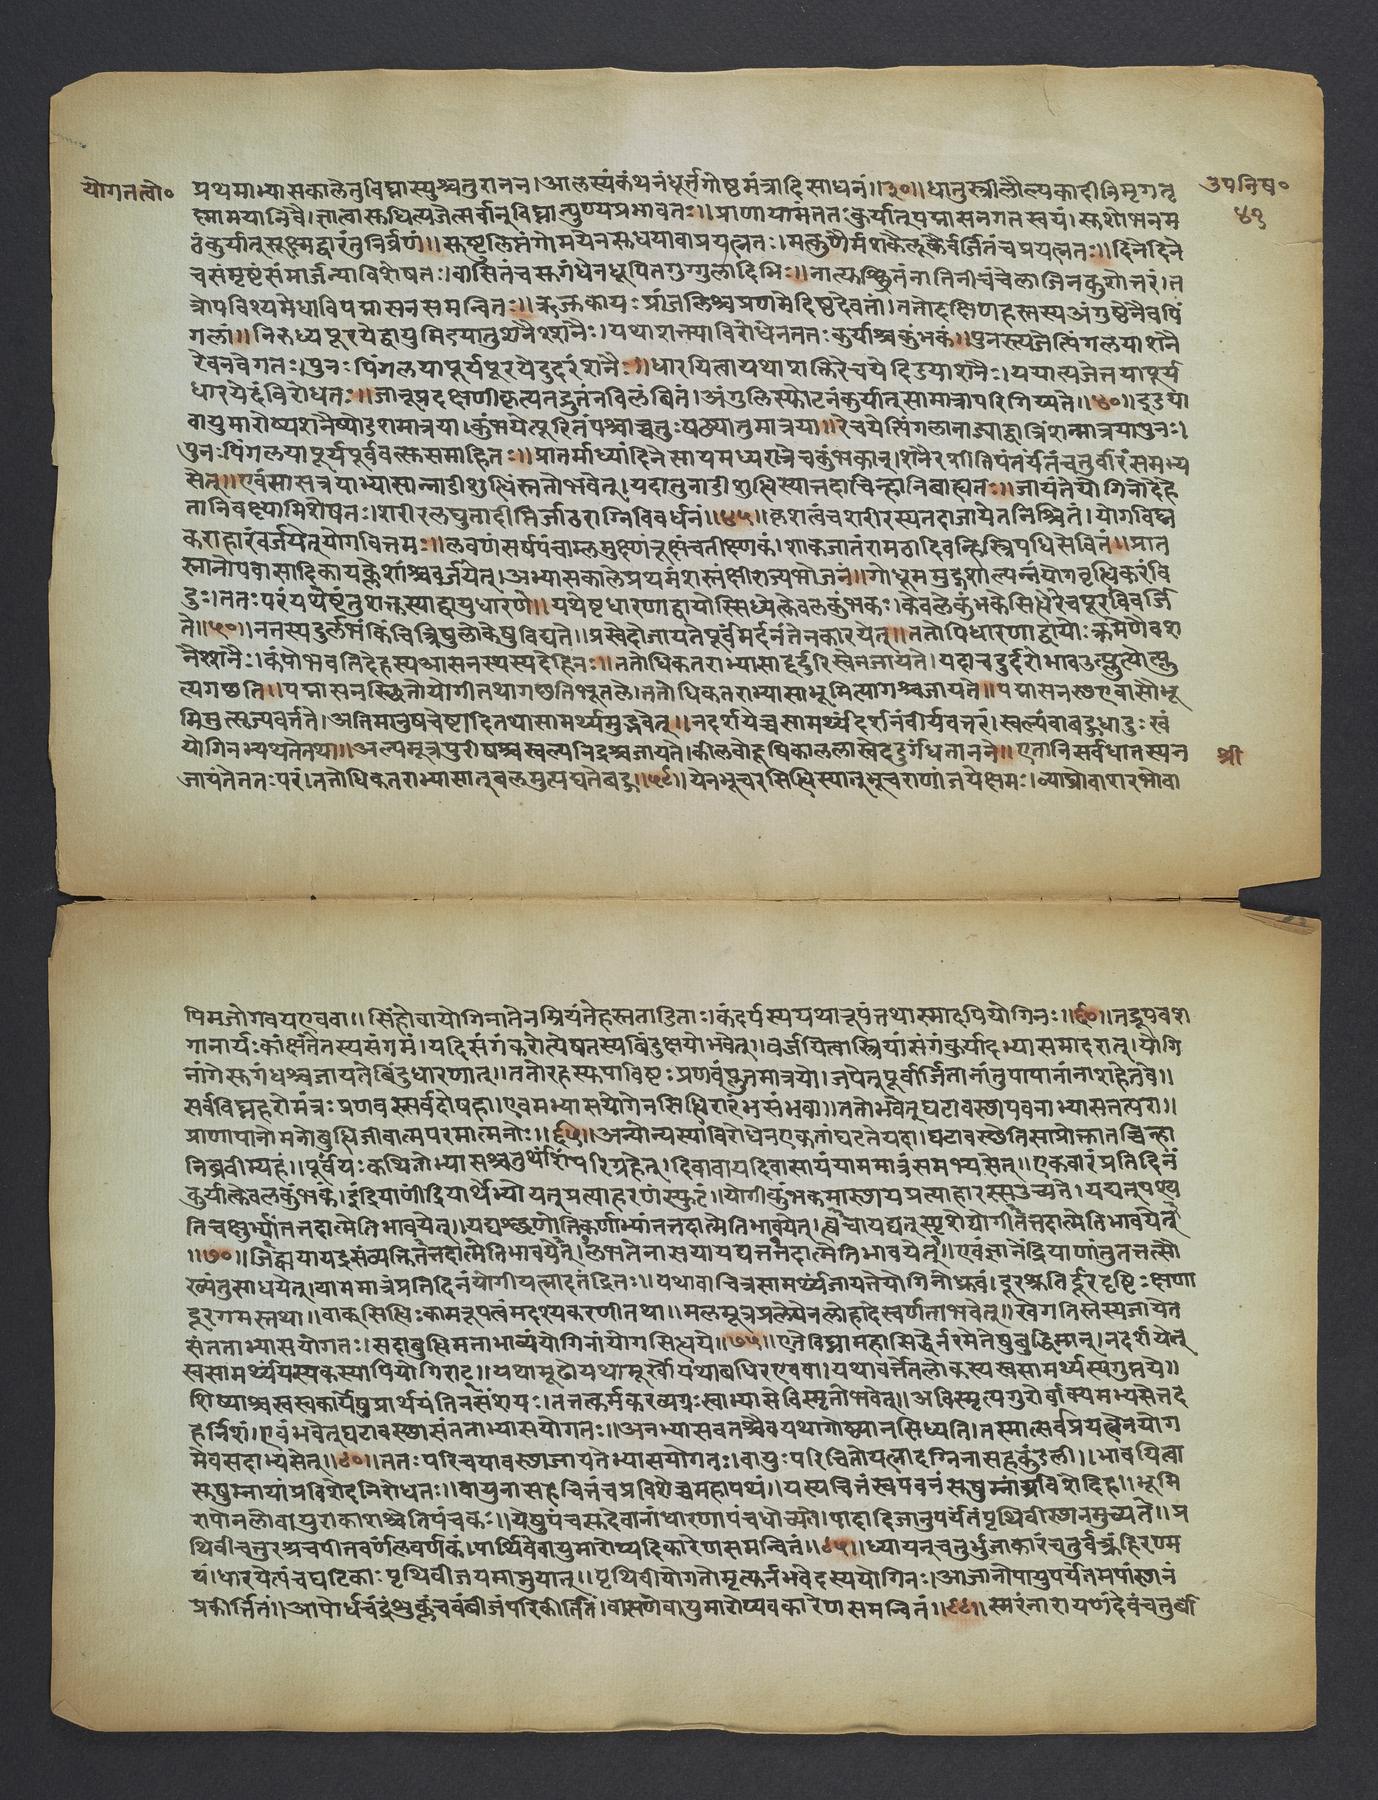 योगतत्वो०
उपनिष०
४१
प्रथमाभ्यासकालेतुविघ्नास्युश्चतुरानन।आलस्यंकंथनंधूर्त्तगोष्ठमंत्रादिसाधनं॥३०॥धातुस्त्रीलौल्यकादीनिमृगतृ
ह्मामयानिवै।ज्ञात्वासुधिस्त्यजेत्सर्वान्विघ्नान्पुण्यप्रभावतः॥प्राणायामंततःकुर्यात्पद्मासनगतस्वयं।सुशोभनम
ठंकुर्यात्सूक्ष्मद्वारंतुनिर्व्रणं॥सुष्टुलिप्तंगोमयेनसुधयावाप्रयत्नतः।मत्कुणैर्मशकैर्लूकैर्वर्जितंचप्रयत्नतः॥दिनेदिने
चसंमृष्टंसंमार्जन्याविशेषतः।वासितंचसुगंधेनधूपितंगुग्गुलादिभिः॥नात्युच्छ्रितंनातिनीचंचेलाजिनकुशोत्तरं।त
त्रोपविश्यमेधाविपद्मासनसमन्वितः॥ऋजुकायःप्रांजलिश्चप्रणमेदिष्टदेवतां।ततोदक्षिणहस्तस्यअंगुष्ठेनैवपिं
गलां॥निरुध्यपूरयेद्वायुमिडयातुशनैश्शनैः।यथाशक्त्याविरोधेनततःकुर्याश्चकुंभकं॥पुनस्त्यजेत्पिंगलयाशनै
रेवनवेगतः।पुनःपिंगलयापूर्यपूरयेदुदरंशनैः॥धारयित्वायथाशक्तिरेचयेदिडयाशनैः।ययात्यजेत्तयापूर्य
धारयेदविरोधतः॥जानूप्रदक्षणीकृत्यनद्रुतंनविलंबितं।अंगुलिस्फोटनंकुर्यात्सामात्रापरिगिय्यते॥४०॥इडया
वायुमारोप्यशनैष्षोडशमात्रया।कुंभयेत्पूरितंपश्चाच्चतुःषष्ठ्यातुमात्रया॥रेचयेत्पिंगलानाड्याद्वात्रिंशन्मात्रयापुनः।
पुनःपिंगलयापूर्यपूर्ववत्सुसमाहितः॥प्रातर्माध्यांदिनेसायमध्यरात्रेचकुंभकान्।शनैरशीतिपर्तंर्यतंचतुर्वारंसमभ्य
सेत्॥एवंमासत्रयाभ्यासान्नाडीशुत्धिस्ततोभवेत्।यदातुनाडीशुत्धिस्यात्तदाचिन्हानिबाह्यतः॥जायंतेयोगिनोदेहे
तानिवक्ष्याम्यिशेषतः।शरीरलघुतादीप्तिर्जाठराग्निविवर्धनं॥४५॥कृशत्वंचशरीरस्यतदाजायेतनिश्चितं।योगविघ्न
कराहारंवर्जयेत्योगवित्तमः॥लवणंसर्षपंचाम्लमुक्ष्णंरूक्षंचतीक्ष्णकं।शाकजातंरामठादिवन्हिस्त्रिपथिसेवितं॥प्रातः
स्नानोपवासादिकायक्लेशांश्चवर्जयेत्।अभ्यासकालेप्रथमंशस्तंक्षीराज्यभोजनं॥गोधूममुद्गशाल्यर्न्नंयोगवृत्धिकरंवि
दुः।ततःपरंयथेष्टंतुशक्तस्याद्वायुधारणे॥यथेष्टधारणाद्वायोस्सिध्येत्केवलकुंभकः।केवलेकुंभकेसिधेरेचपूरविवर्जि
ते॥५०॥नतस्यदुर्लभंकिंचित्त्रिषुलोकेषुविद्यते॥प्रस्वेदोजायतेपूर्वंमर्दनंतेनकारयेत्॥ततोपिधारणाद्वायोःक्रमेणैवश
नैश्शनैः।कंपोभवतिदेहस्यआसनस्थस्यदेहिनः॥ततोधिकतराभ्यासाद्दूर्दुरिस्वेनजायते।यदाचदुर्दुरोभावउत्प्लुत्योत्प्लु
त्यगछति॥पद्मासनस्छितोयोगीतथागछतिभूतले।ततोधिकतराभ्यासाभूमित्यागश्चजायते॥पद्मासनस्छएवासौभू
मिमुत्सृज्यवर्त्तते।अतिमानुषचेष्टादितथासामर्थ्यमुद्भवेत्॥नदर्शयेच्चसामर्थ्यंदर्शनंवीर्यवत्तरं।स्वल्पंवाबहुधादुःखं
योगिनभ्यथतेतथा॥अल्पमूत्रपुरीषश्चस्वल्पनिद्रश्चजायते।कीलवोदूषिकाललास्वेददुर्गंधितानने॥एतानिसर्वधातस्यन
श्री
जायंतेततःपरं।ततोधिकतराभ्यासात्बलमुत्पद्यतेबहु॥५९॥येनभूचरसित्धिस्यात्भूचराणांजयेक्षमः।व्याघ्रोवाशरभोवा
पिगजोगवयएववा॥सिंहोवायोगिनातेनम्रियंतेहस्तताडिताः।कंदर्पस्ययथारूपंतथास्मादपियोगिनः॥६०॥तद्रूपवश
गानार्यःकांक्षंतेतस्यसंगमं।यदिसंगंकरोत्येषतस्यबिंदुक्षयोभवेत्॥वर्जयित्वास्त्रियांसंगंकुर्यादभ्यासमादरात्।योगि
नोंगेसुगंधश्चजायतेबिंदुधारणात्॥ततोरहस्युपाविष्टःप्रणवंप्लुतमात्रयो।जपेत्पूर्वार्जितानांतुपापानांनाशहेतवे॥
सर्वविघ्नहरोमंत्रःप्रणवस्सर्वदोषहा॥एवमभ्यासयोगेनसित्धिरारंभसंभवा॥ततोभवेत्घटावस्छापवनाभ्यासतत्परा॥
प्राणापानोमनोबुत्धिजीवात्मपरमात्मनोः॥६५॥अन्योन्यस्याविरोधेनएकतांघटतेयदा।घटावस्छेतिसाप्रोक्तातच्चिन्हा
निब्रवीम्यहं।पूर्वंयःकथितोभ्यासश्चतुर्थांशंपरिग्रहेत्।दिवावायदिवासायंयाममात्रंसमभ्यसेत्॥एकवारंप्रतिदिनं
कुर्यात्केवलकुंभकं।इंद्रियाणींद्रियार्थेभ्योयत्प्रत्याहरणंस्फुटं॥योगीकुंभकमास्छायप्रत्याहारस्सउच्यते।यद्यत्पश्य
तिचक्षुर्भ्यांतत्तदात्मेतिभावयेत्॥यद्यश्छृणोतिकर्णाभ्यांतत्तदात्मेतिभावयेत्।त्वचायद्यत्स्पृशेयोगीतत्तदात्मेतिभावयेत्
॥७०॥जिह्वयायद्रसंव्यक्तितत्तदात्मेतिभावयेत्।लभतेनासयायद्यत्तत्तदात्मेतिभावयेत्॥एवंज्ञानेंद्रियाणांतुतत्तत्सौ
ख्यंतुसाधयेत्।याममात्रंप्रतिदिनंयोगीयत्नादतंद्रितः॥यथावाचित्रसामर्थ्यंजायतेयोगिनोध्रुवं।दूरश्रुतिर्दूरदृष्टिःक्षणा
दूरगमस्तथा॥वाक्सित्धिःकामरूपत्वंमदृश्यकरणीतथा॥मलमूत्रप्रलेपेनलोहादेस्वर्णताभवेत्॥खेगतिस्तस्यजायेत
संतताभ्यासयोगतः।सदाबुत्धिमताभाव्यंयोगिनांयोगसित्धये॥७५॥एतेविघ्नामहासिद्धेर्नरमेत्तेषुबुद्धिमान्।नदर्शयेत्
स्वसामर्थ्यंयस्यकस्यापियोगिराट्॥यथामूढोयथामूर्खोयथाबधिरएववा।यथावर्त्तेतलोकस्यस्वसामर्थ्यस्यगुप्तये॥
शिष्याश्चस्वस्वकार्येषुप्रार्थयंतिनसंशयः।तत्तत्कर्मकरव्यग्रःस्वाभ्यासेविस्मृतोभवेत्॥अविस्मृत्यगुरोर्वाक्यमभ्यसेत्तद
हर्निशं।एवंभवेत्घटावस्छासंतताभ्यासयोगतः॥अनभ्यासवतश्चैवयथागोष्ठ्यानसिध्यति।तस्मात्सर्वप्रयत्नेनयोग
मेवसदाभ्यसेत्॥८०॥ततःपरिचयावस्छाजायतेभ्यासयोगतः।वायुःपरिचितोयत्नादग्निनासहकुंडली॥भावयित्वा
सुषुम्नायांप्रविशेदनिरोधतः॥वायुनासहचित्तंचप्रविशेच्चमहापथं॥यस्यचित्तंस्वपवनंसुषुम्नांप्रविशेदिह॥भूमि
रापोनलोवायुराकाशश्चेतिपंचकः॥येषुपंचसुदेवानांधारणापंचधोच्यते।पादादिजानुपर्यंतंपृथिवीस्छानमुच्यते॥प्र
थिवीचतुरश्रंचपीतवर्णंलवर्णकं।पार्थिवेवायुमारोप्यदिकारेणसमन्वितं॥८५॥ध्यायन्चतुर्भुजाकारंचतुर्वक्त्रंहिरण्म
यं।धारयेत्पंचघटिकाःपृथिवीजयमाप्नुयात्॥पृथिवीयोगतोमृत्युर्नभवेदस्ययोगिनः।आजानोपायुपर्यंतमपांस्छानं
प्रकीर्त्तितं॥आपोर्धचंद्रंशुक्लंचवंबीजंपरिकीर्तितं।वारुणेवायुमारोप्यवकारेणसमन्वितं॥८८॥स्मरंनारायणंदेवंचतुर्बा